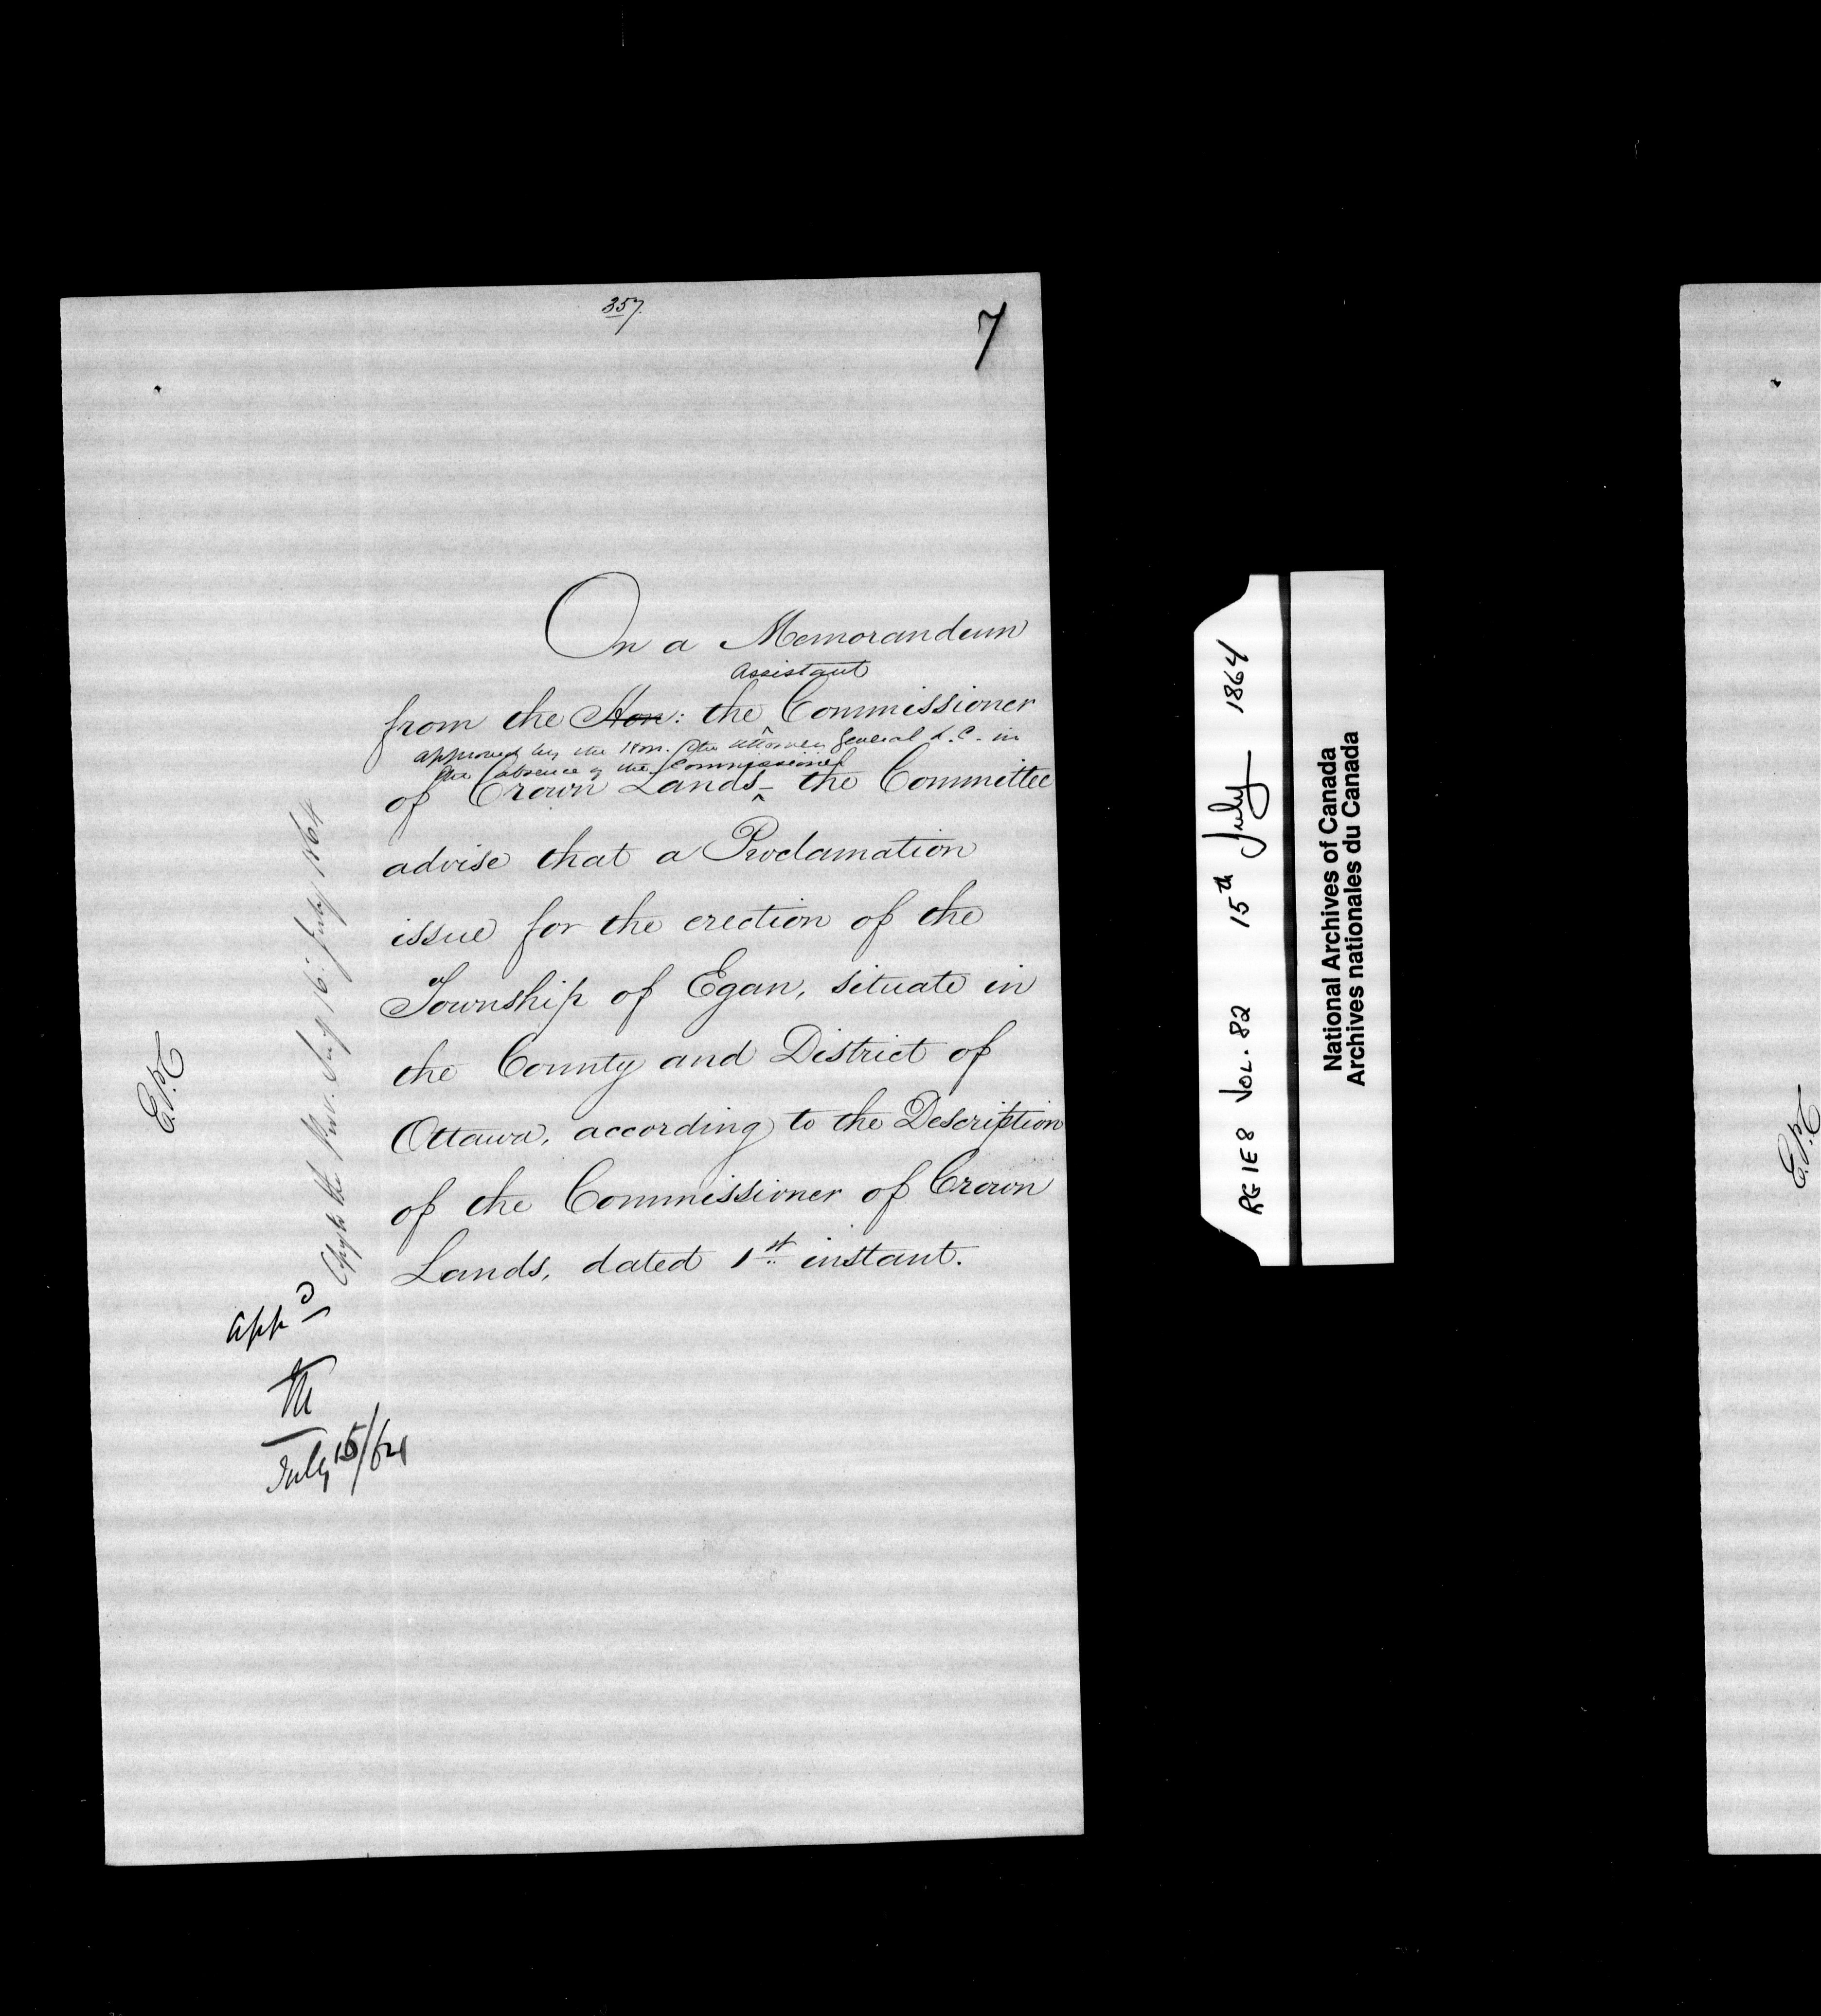 357.
7
On a Memorandum
Assistant
from the Hon: the Commissioner
approved by the Hon. the Attorney General L.C. in
the absence of the Commissioner
of Crown Lands – the Committee
advise that a Proclamation
issue for the erection of the
Township of Egan, situate in
the County and District of
Ottawa, according to the Description
of the Commissioner of Crown
Lands, dated 1st instant.
16 July 1864
Appd
M
July 15/64
RG 1E8 VOL. 82 15th July 1864
National Archives of Canada
Archives nationales du Canada